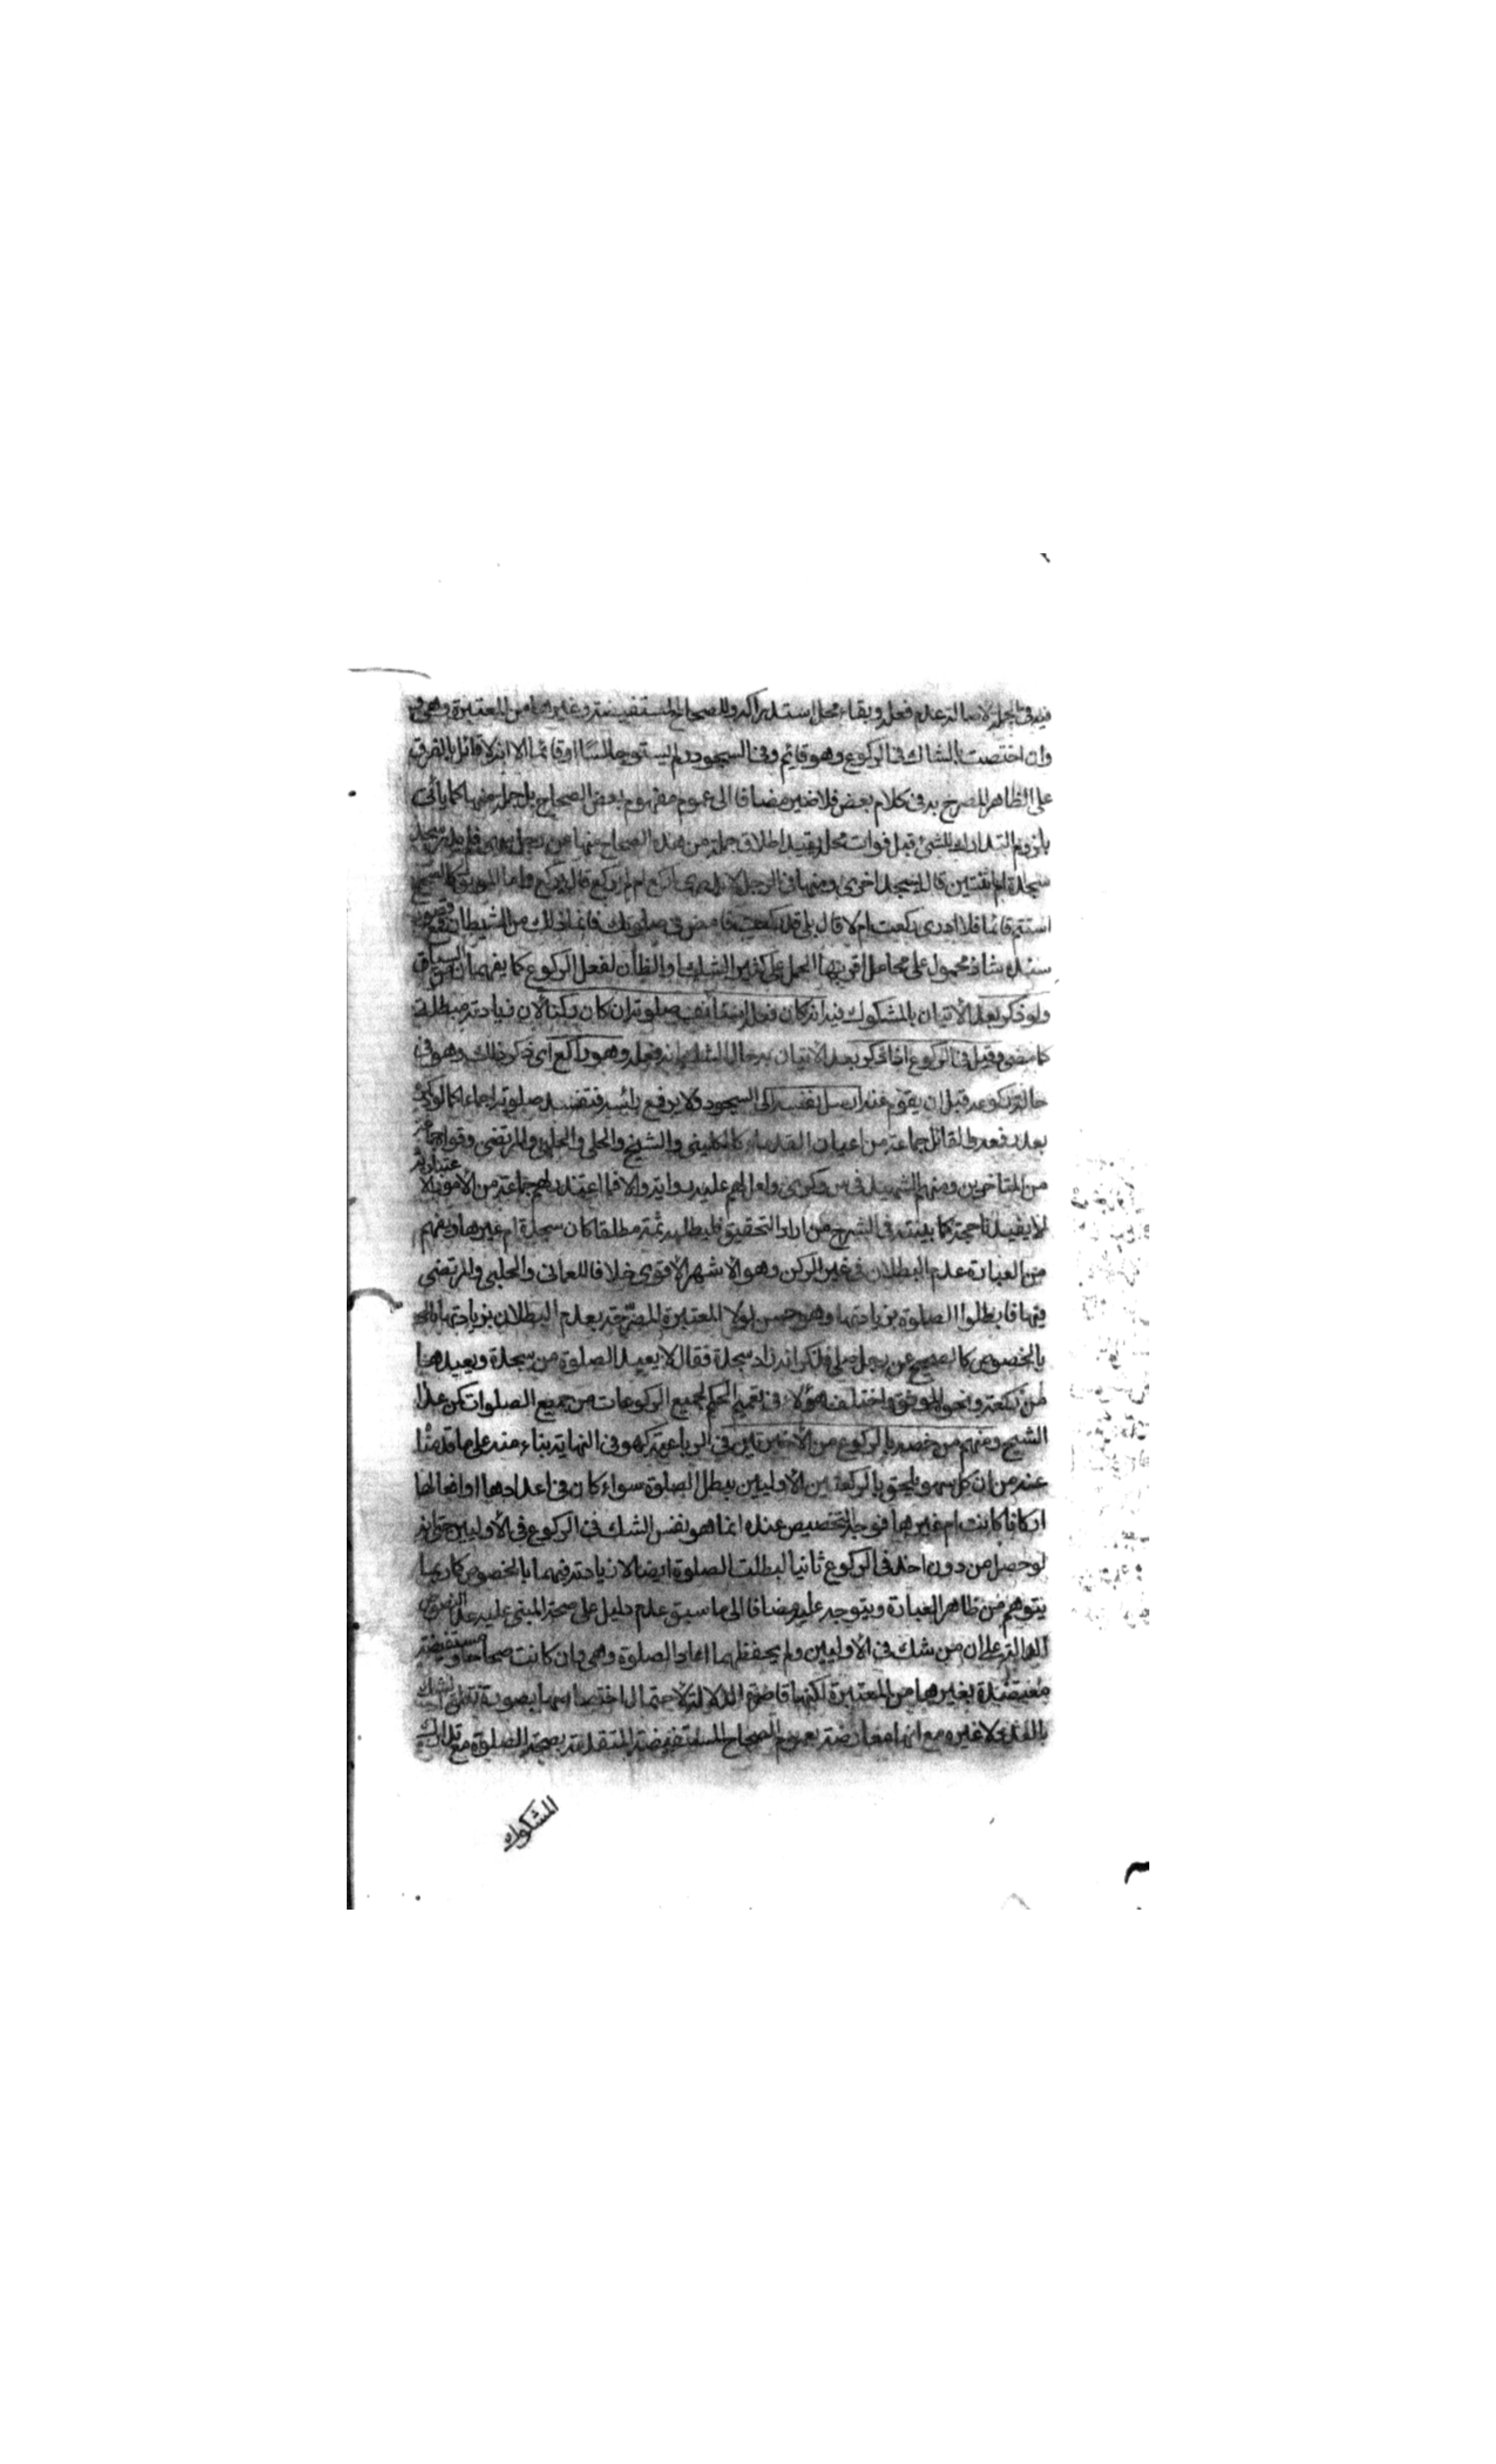 فيه في الجملة لاصالة عدم فعله وبقاء محل استدراكه وللصحاح المستفيضة وغيرها من المعتبرة وهي
وان اختصت بالشاك في الركوع وهو قائم وفي السجود ولم يستو جالسا او قائما الا انه لا قائل بالفرق
على الظاهر المصرح به في كلام بعض فلاضير مضافا الى عموم مفهوم بعض الصحاح بل جملة منها كما يأتي
بلزوم التدارك للشئ قبل فوات محله يقيد اطلاق جملة من هذه الصحاح منها عن رجل سهى فلم يدر سجد
سجدة ام ثنتين قال يسجد اخرى ومنها في الرجل لا يدري اركع ام لم يركع قال يركع واما الموثق كالصحيح
استتم قائما فلا ادري ركعت ام لا قال بلى قد ركعت فامض في صلوتك فانما ذلك من الشيطان فمع قصور
سنده شاذ محمول على محامل اقربها الحمل على كثير الشك او الظان لفعل الركوع كما يفهم من السياق
ولو ذكر بعد الأتيان بالمشكوك فيه انه كان فعله استأنف صلوته ان كان ركنا لان زيادته مبطلة
كما مضى وقيل في الركوع اذا ذكر بعد الاتيان به حال الشك انه فعله وهو راكع اى ذكر ذلك وهو في
حالة ركوعه قبل ان يقوم عنه ارسل نفسه الى السجود ولا يرفع رأسه فتفسد صلوته اجماعا كما لو ذكره
بعد رفعه والقائل جماعة من اعيان القدماء كالكليني والشيخ والحلي والحلبي والمرتضى وقواه جماعة
من المتاخرين ومنهم الشهيد في س وكرى ولعل لهم عليه رواية والا فما اعتذر به لهم جماعة من الأمور الاعتبارية
لا يفيدنا حجة كما بينته في الشرح من اراد التحقيق فليطلبه ثمة مطلقا كان سجدة ام غيرها ويفهم
من العبارة عدم البطلان في غير الركن وهو الأشهر الأقوى خلافا للعماني والحلبي والمرتضى
فيها فابطلوا الصلوة بزيادتها وهو حسن لولا المعتبرة المصرحة بعدم البطلان بزيادتها
بالخصوص كالصحيح عن رجل صلى فذكر انه زاد سجدة فقال لا يعيد الصلوة من سجدة ويعيدها
من ركعة ونحوه الموثق واختلف هؤلاء في تعميم الحكم لجميع الركوعات من جميع الصلوات كمن عدا
الشيخ ومنهم من خصه بالركوع من الأخيرتين في الرباعية كهو في النهاية بناء منه على ما قدمنا
عنه من ان كل سهو يلحق بالركعتين الأوليين يبطل الصلوة سواء كان في اعدادها او افعالها
اركانا كانت ام غيرها فوجه التخصيص عنده انما هو نفس الشك في الركوع في الأوليين حتى انه
لو حصل من دون اخذ في الركوع ثانيا لبطلت الصلوة ايضا لا زيادته فيهما بالخصوص كما ربما
يتوهم من ظاهر العبارة ويتوجه عليه مضافا الى ما سبق عدم دليل على صحة المبنى عليه عدا النصوص
الدالة على ان من شك في الأوليين ولم يحفظهما اعاد الصلوة وهي وان كانت صحاحا ومستفيضة
معتضدة بغيرها من المعتبرة لكنها قاصرة الدلالة لاحتمال اختصاصها بصورة تعلق الشك
بالعدد لا غيره مع انها معارضة بعموم الصحاح المستفيضة المتقدمة بصحة الصلوة مع تدارك
المشكوك